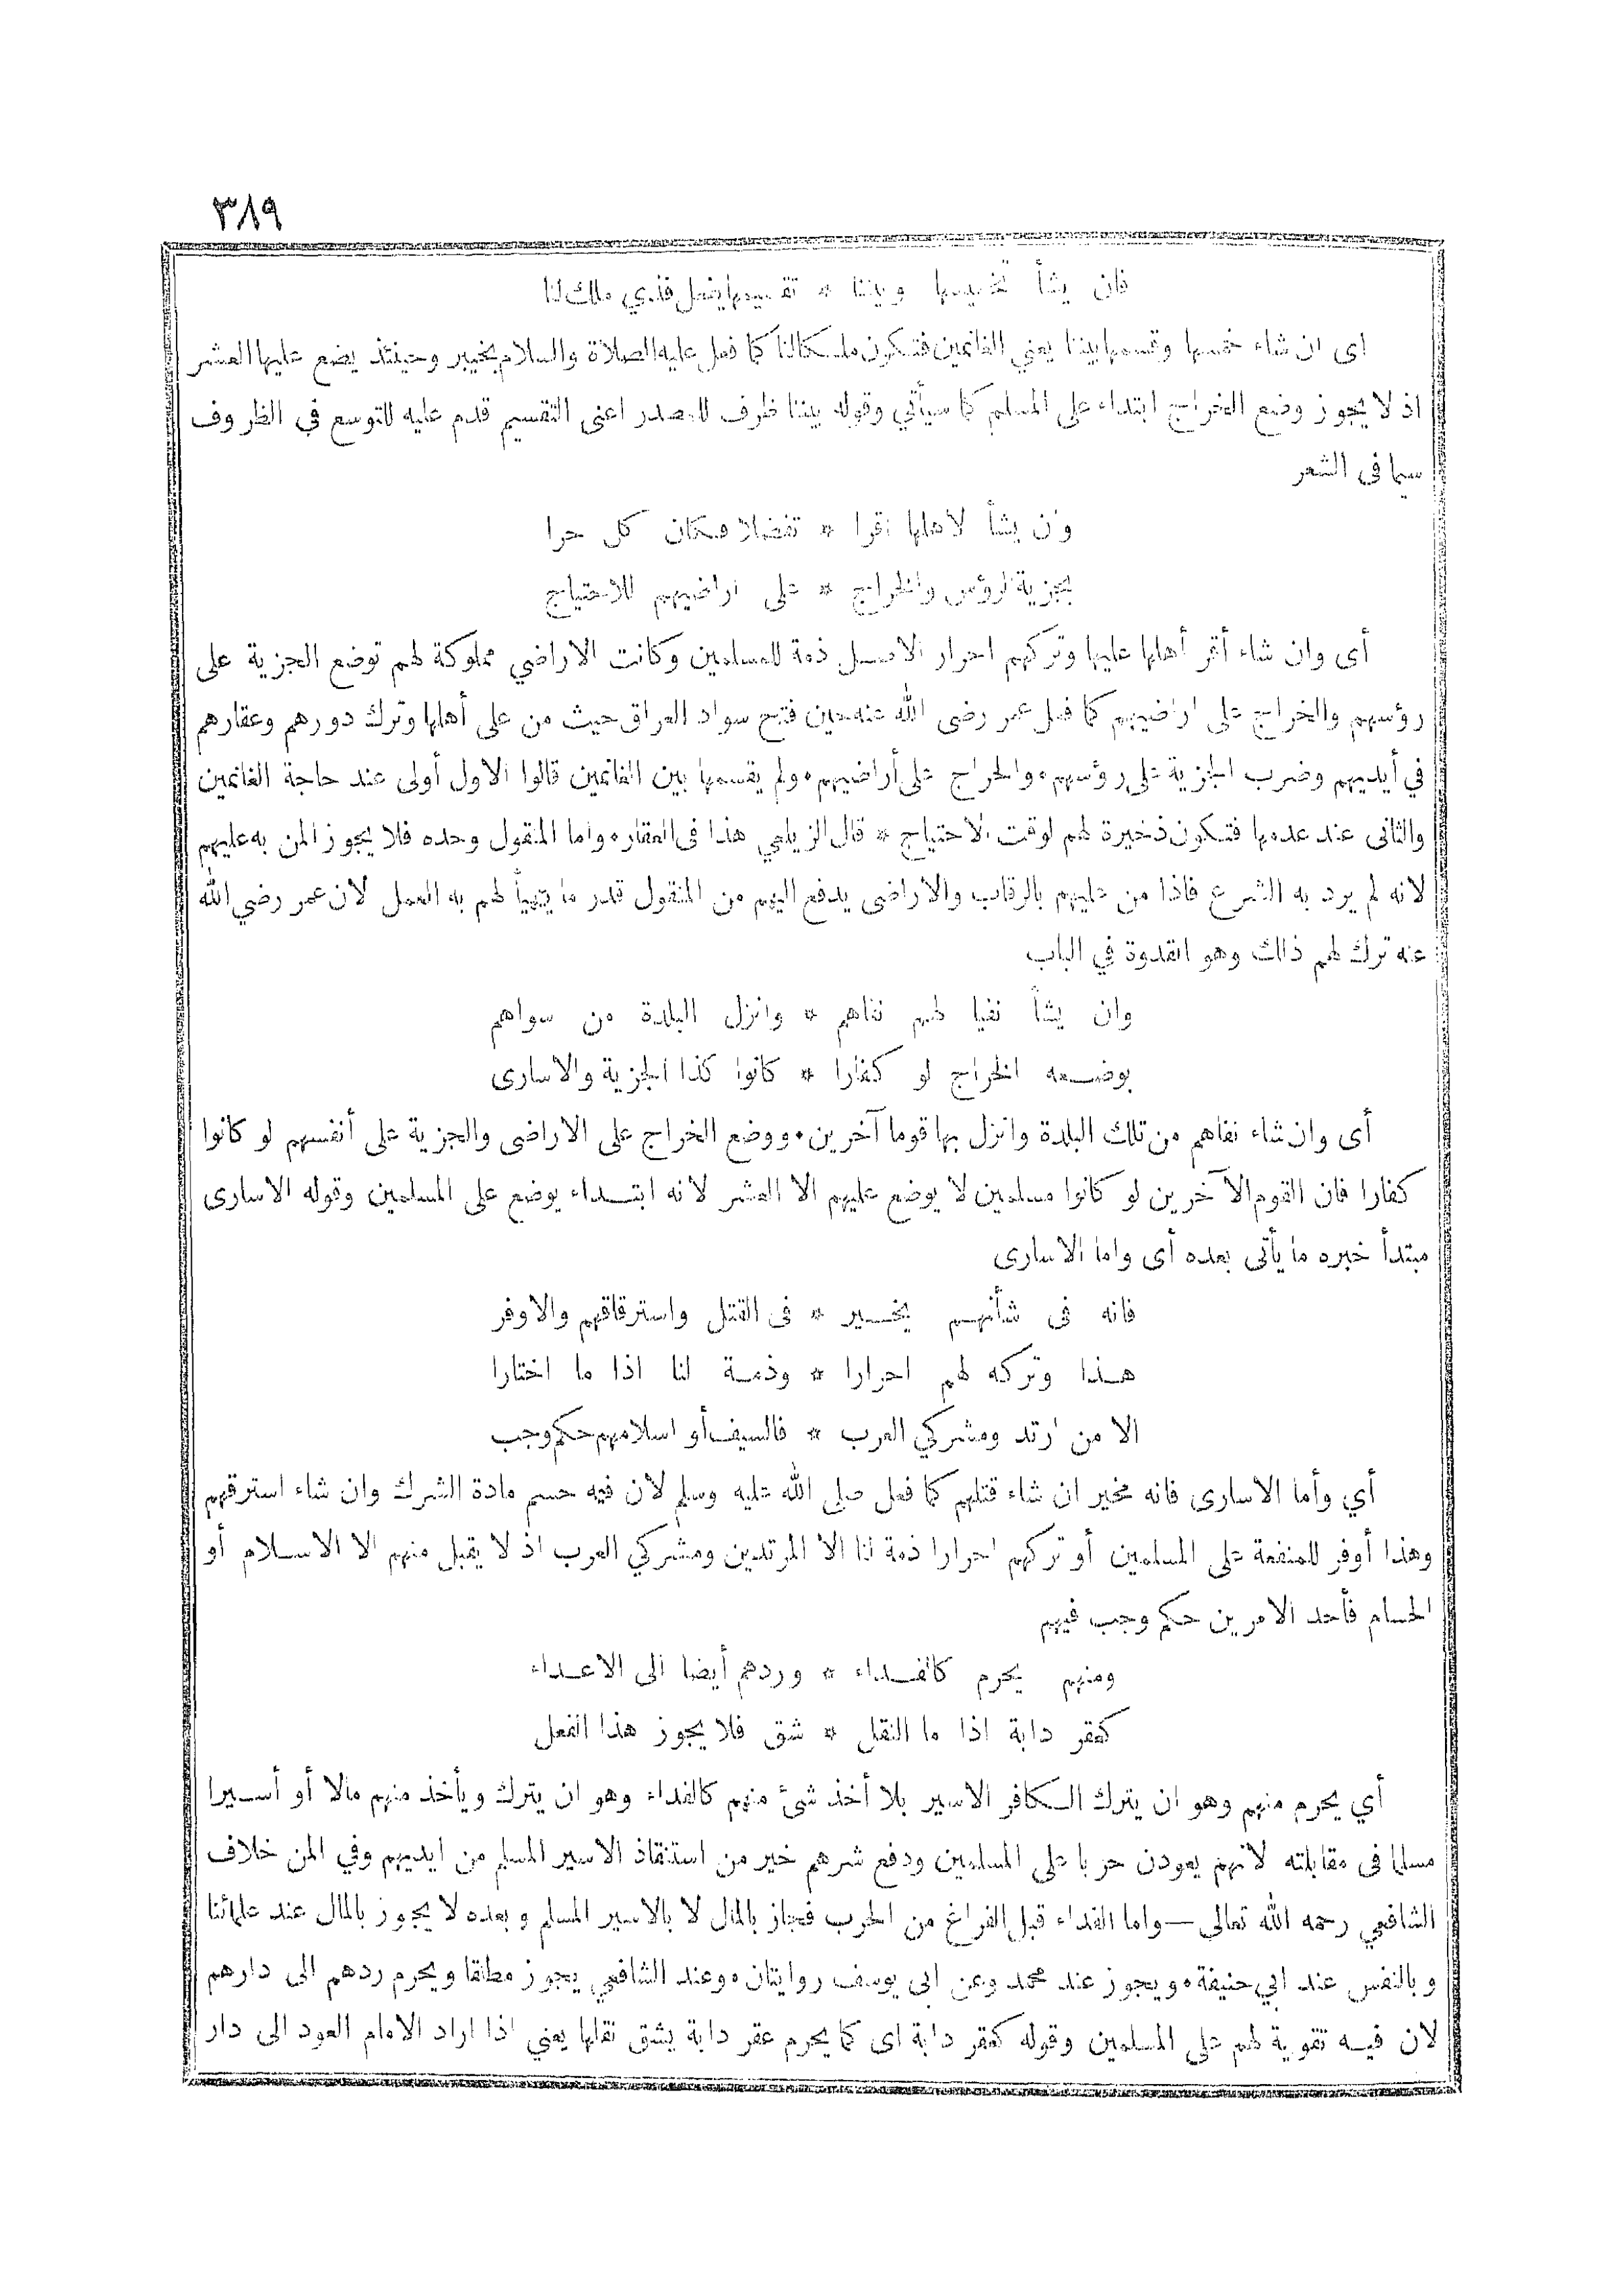 ٣٨٩
فان يشأ تخميسها وبيننا * تقسيمها يفعل فذي ملك لنا
اى ان شاء خمسها وقسمها بيننا يعني الغانمين فتكون ملكا لنا كما فعل عليه الصلاة والسلام بخيبر وحينئذ يضع عليها العشر
اذ لا يجوز وضع الخراج ابتداء على المسلم كما سيأتي وقوله بيننا ظرف للمصدر اعنى التقسيم قدم عليه للتوسع في الظروف
سيما فى الشعر
وان يشأ لاهلها اقرا * تفضلا فكان كل حرا
بجزية الرؤس والخراج * على اراضيهم للاحتياج
أى وان شاء أقر أهلها عليها وتركهم احرار الاصل ذمة للمسلمين وكانت الاراضي مملوكة لهم توضع الجزية على
رؤسهم والخراج على اراضيهم كما فعل عمر رضى الله عنه حين فتح سواد العراق حيث من على أهلها وترك دورهم وعقارهم
في أيديهم وضرب الجزية على رؤسهم٠ والخراج على أراضيهم٠ ولم يقسمها بين الغانمين قالوا الاول أولى عند حاجة الغانمين
والثانى عند عدمها فتكون ذخيرة لهم لوقت الاحتياج * قال الزيلعي هذا فى العقار٠ واما المنقول وحده فلا يجوز المن به عليهم
لانه لم يرد به الشرع فاذا من عليهم بالرقاب والاراضى يدفع اليهم من المنقول قدر ما يتهيأ لهم به العمل لان عمر رضي الله
عنه ترك لهم ذلك وهو القدوة في الباب
وان يشأ نفيا لهم نفاهم * وانزل البلدة من سواهم
بوضعه الخراج لو كفارا * كانوا كذا الجزية والاسارى
أى وان شاء نفاهم من تلك البلدة وانزل بها قوما آخرين٠ ووضع الخراج على الاراضى والجزية على أنفسهم لو كانوا
كفارا فان القوم الآخرين لو كانوا مسلمين لا يوضع عليهم الا العشر لانه ابتداء يوضع على المسلمين وقوله الاسارى
مبتدأ خبره ما يأتى بعده أى واما الاسارى
فانه فى شأنهم يخير * فى القتل واسترقاقهم والاوفر
هذا وتركه لهم احرارا * وذمة لنا اذا ما اختارا
الا من ارتد ومشركي العرب * فالسيف أو اسلامهم حكم وجب
أي وأما الاسارى فانه مخير ان شاء قتلهم كما فعل صلى الله عليه وسلم لان فيه حسم مادة الشرك وان شاء استرقهم
وهذا أوفر للمنفعة على المسلمين أو تركهم احرارا ذمة لنا الا المرتدين ومشركي العرب اذ لا يقبل منهم الا الاسلام أو
الحسام فأحد الامرين حكم وجب فيهم
ومنهم يحرم كالفداء * وردهم أيضا الى الاعداء
كعقر دابة اذا ما النقل * شق فلا يجوز هذا الفعل
أي يحرم منهم وهو ان يترك الكافر الاسير بلا أخذ شئ منهم كالفداء وهو ان يترك ويأخذ منهم مالا أو أسيرا
مسلما فى مقابلته لانهم يعودن حربا على المسلمين ودفع شرهم خير من استنقاذ الاسير المسلم من ايديهم وفي المن خلاف
الشافعي رحمه الله تعالى — واما الفداء قبل الفراغ من الحرب فجاز بالمال لا بالاسير المسلم وبعده لا يجوز بالمال عند علمائنا
وبالنفس عند ابي حنيفة٠ ويجوز عند محمد وعن ابى يوسف روايتان٠ وعند الشافعي يجوز مطلقا ويحرم ردهم الى دارهم
لان فيه تقوية لهم على المسلمين وقوله كعقر دابة اى كما يحرم عقر دابة يشق نقلها يعني اذا اراد الامام العود الى دار